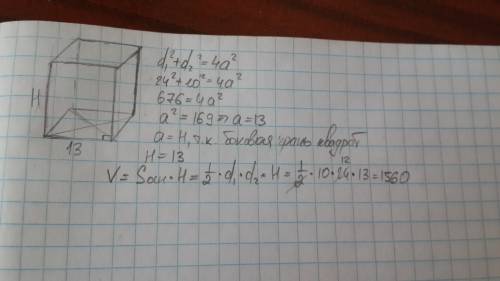 d₁²+d₂²=4a²
24²+10²=4a²
676=4a²
a²=169 ⇒ a=13
a=H, т.к. боковая грань квадрат
H=13
V= Sосн·H= 1/2·d₁·d₂·H= 1/2·10·24·13=1560
12
H
13